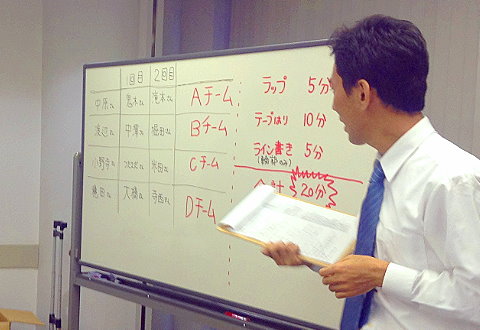 1回目 2回目
中原さん 荒木さん 荒木さん Aチーム
渡辺さん 中澤さん 堀田さん Bチーム
小野寺さん さん 米田さん Cチーム
亀田さん 大橋さん 寺西さん Dチーム
ラップ 5分
テープはり 10分
ライン書き 5分
(輪郭のみ)
合計 20分